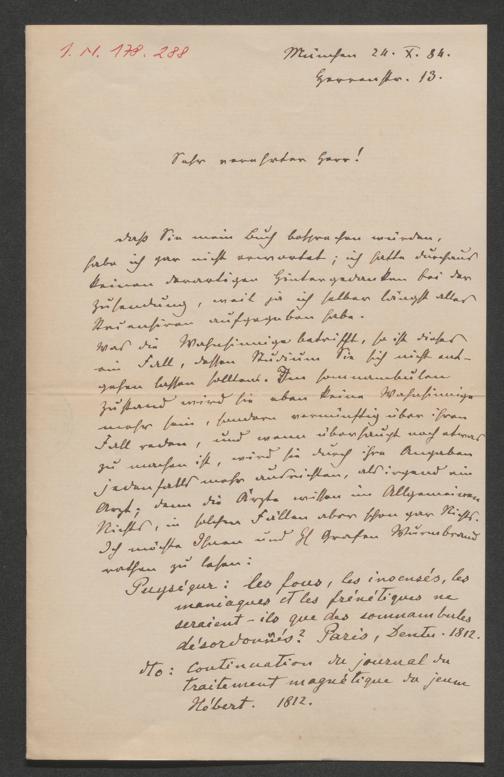 I. N. 178.288
München 24. X. 84.
Herrenstr. 13.
Sehr verehrter Herr!
Daß Sie mein Buch besprechen würden,
habe ich gar nicht erwartet; ich hatte durchaus
keinen derartigen Hintergedanken bei der
Zusendung, weil ja ich selber längst alles
Recensiren aufgegeben habe.
Was die Wahnsinnige betrifft, so ist dieses
ein Fall, dessen Studium Sie sich nicht ent-
gehen lassen sollten. Im somnambulen
Zustand wird sie eben keine Wahnsinnige
mehr sein, sondern vernünftig über ihren
Fall reden, und wenn überhaupt noch etwas
zu machen ist, wird sie durch ihre Angaben
jedenfalls mehr ausrichten, als irgend ein
Arzt; denn die Ärzte wissen im Allgemeinen
Nichts, in solchen Fällen aber schon gar Nichts.
Ich möchte Ihnen und Grafen Wurmbrand
rathen zu lesen:
Puységur: les fous, les insensés, les
maniaques et les frénétiques ne
seraient-ils que des somnambules
désordonnés? Paris, Dentu. 1812.
dto: Continuation du journal du
traitement magnétique du jeune
Hébert. 1812.